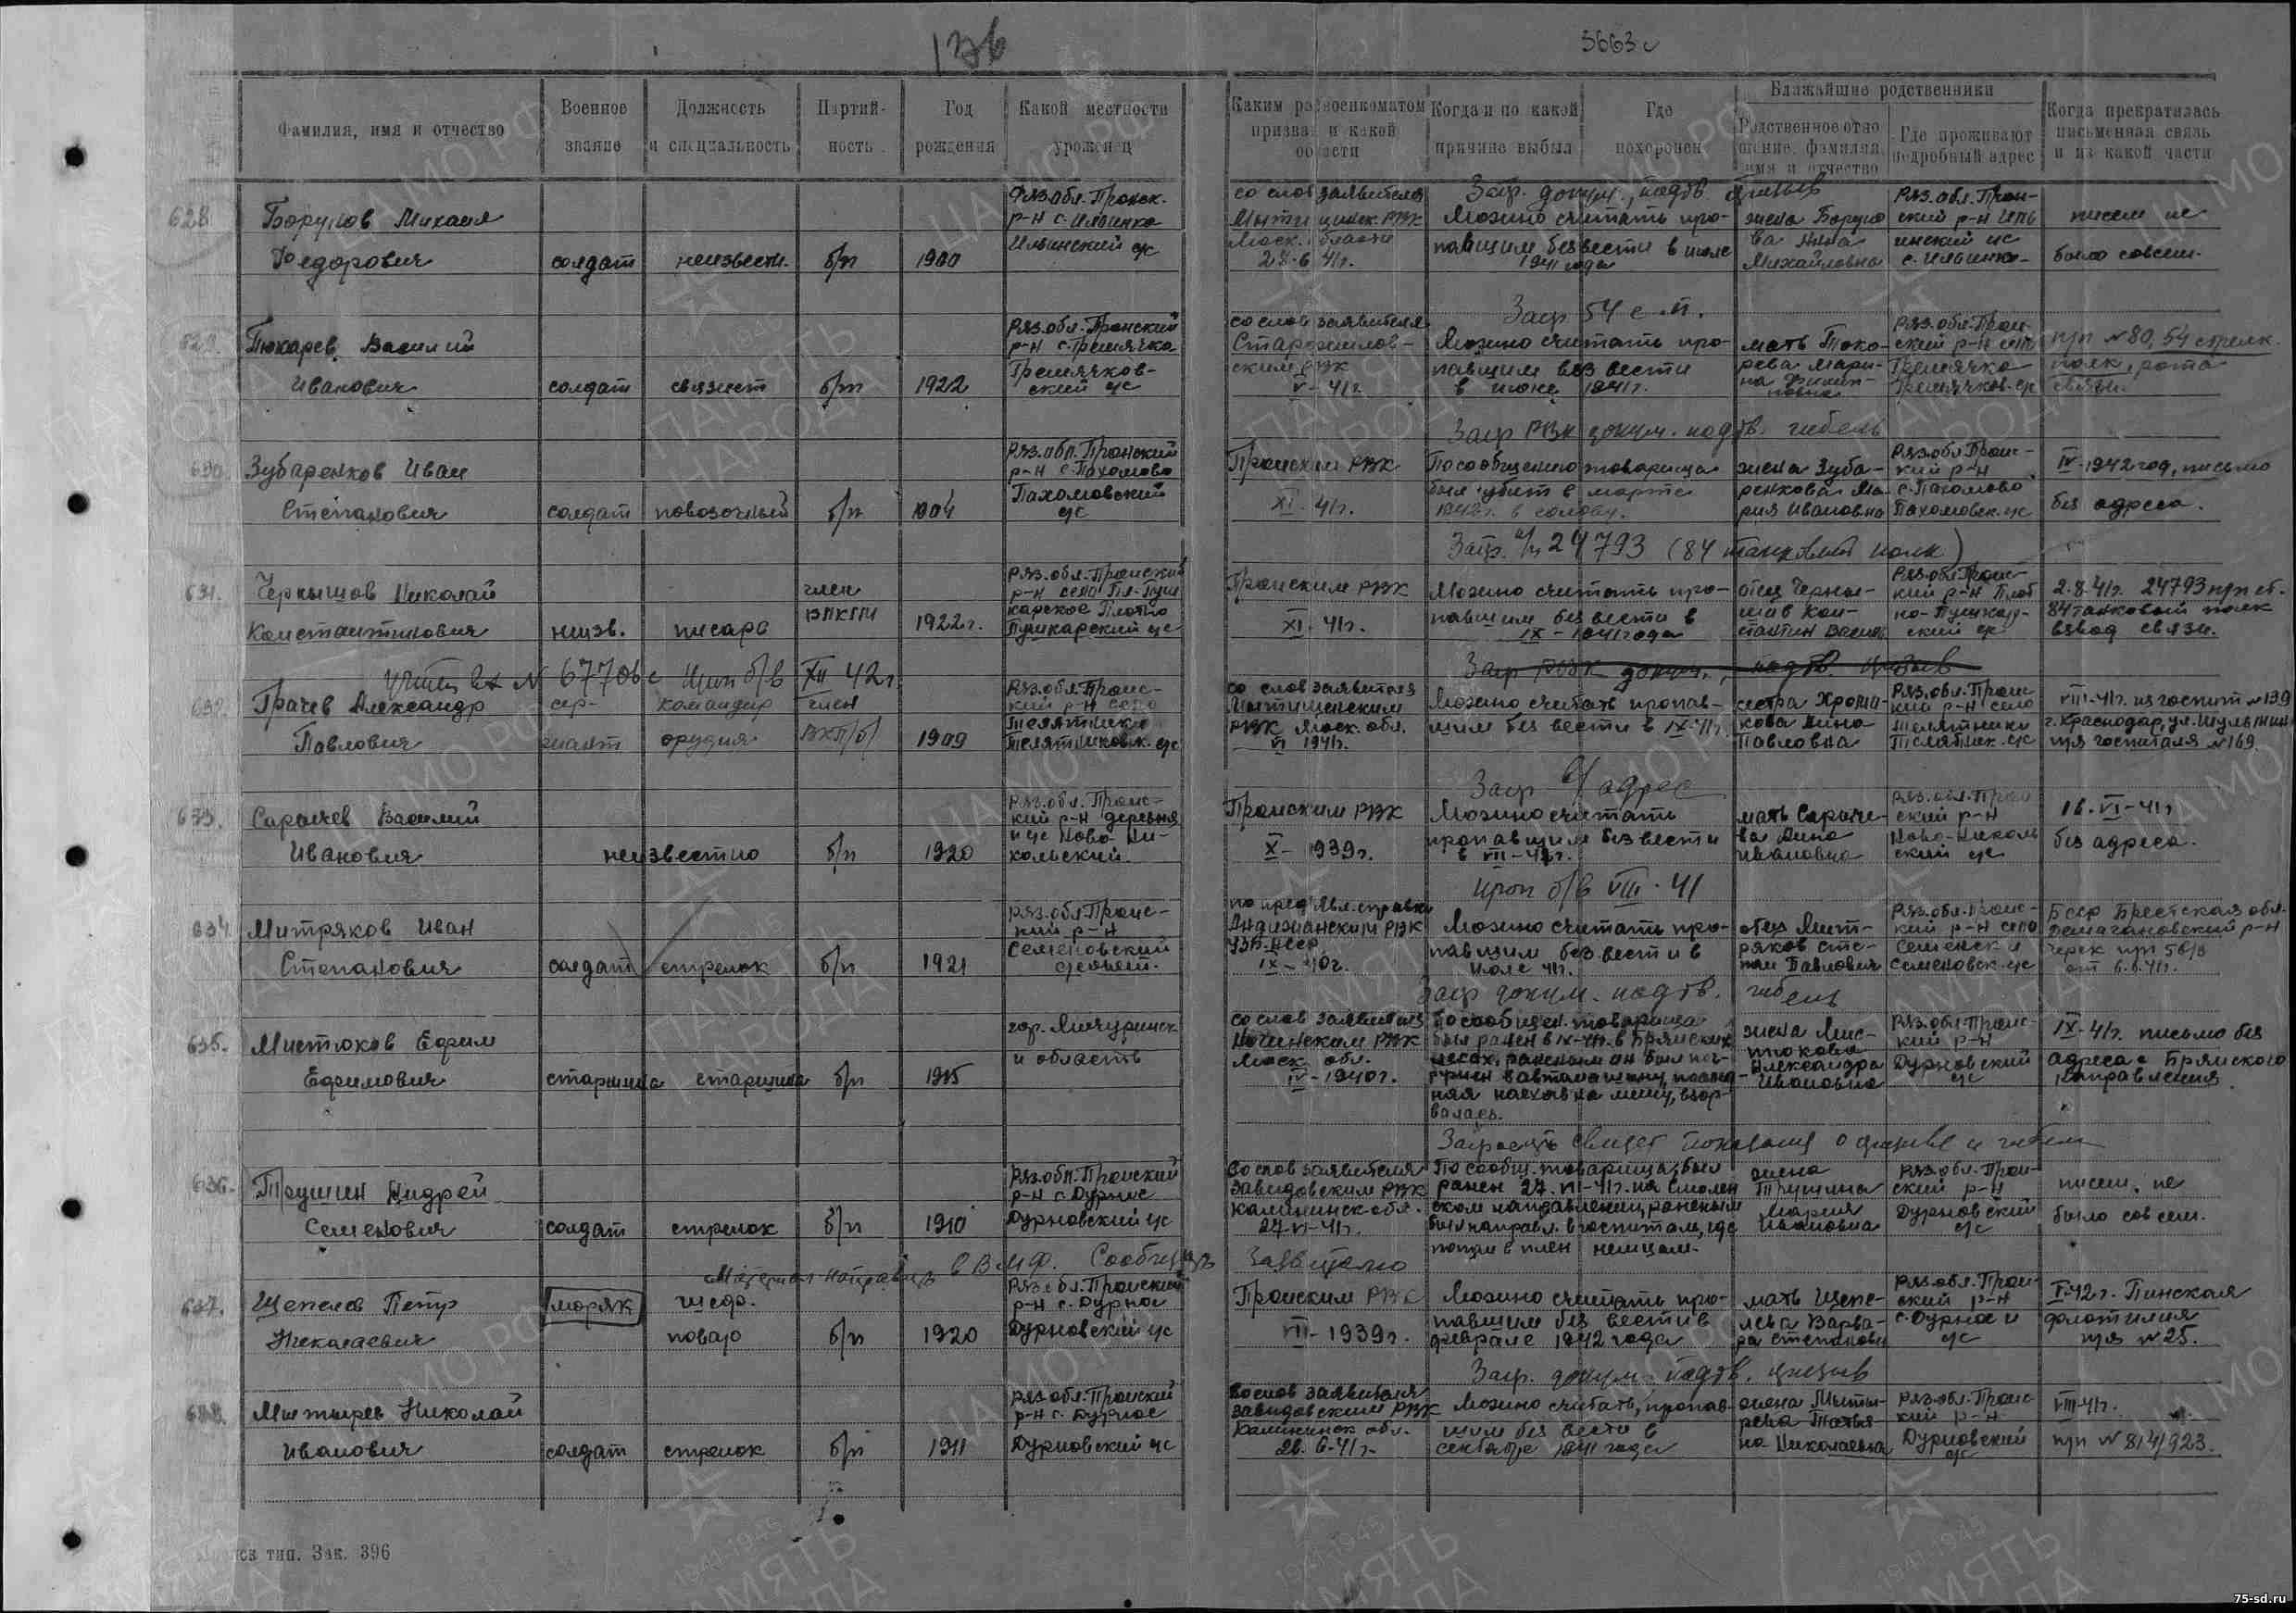 5663с
Фамилия, имя и отчество
Военное звание
Должность и специальность
Партий-ность
Год рождения
Какой местности уроженец
Каким райвоенкоматом призван и какой области
Когда и по какой причине выбыл
Где похоронен
Ближайшие родственники
Родственное отношение, фамилия, имя и отчество
Где проживают подробный адрес
Когда прекратилась письменная связь и из какой части
628. Борунов Михаил
Федорович солдат неизвестн. б/п 1900
Ряз. обл. Пронск. р-н с. Ильинка Ильинский с/с
со слов заявителя Мытищинск. РВК Моск. области 28-6 41г.
Запр. докум., подтв. призыв
Можно считать пропавшим без вести в июле 1941 года
жена Борунова Анна Михайловна
Ряз. обл. Пронский р-н Ильинский с/с с. Ильинка
писем не было совсем.
629. Токарев Василий
Иванович солдат связист б/п 1922
Ряз. обл. Пронский р-н с. Гремячка Гремячковский с/с
со слов заявителя Старожиловским РВК V-41г.
Запр 54 с.п.
Можно считать пропавшим без вести в июне 1941г.
мать Токарева Марина Филипповна
Ряз. обл. Пронский р-н село Гремячка Гремячков. с/с
п/п №80, 54 стрелк. полк, рота связи.
630. Зубаренков Иван
Степанович солдат повозочный б/п 1904
Ряз. обл. Пронский р-н с. Пахомово Пахомовский с/с
Пронским РВК XI-41г.
Запр РВК докум. подтв. гибель
По сообщению товарища был убит в марте 1942г.
жена Зубаренкова Мария Ивановна
Ряз. обл. Пронский р-н с. Пахомово Пахомовск. с/с
IV-1942 год, письмо без адреса.
631. Чернышов Николай
Константинович неизв. писарь член ВЛКСМ 1922г.
Ряз. обл. Пронский р-н село Пл-Пушкарское Плотно Пушкарский с/с
Пронским РВК XI-41г.
Запр. в/ч 24793 (84 танковый полк)
Можно считать пропавшим без вести в IX-1941 года
отец Чернышов Константин Василь
Ряз. обл. Пронский р-н Плотно-Пушкарский с/с
2.8.41г. 24793 п/п ст. 84 танковый полк взвод связи.
№ 67706с Проп б/в XII 42г.
632. Грачев Александр
Павлович сержант командир орудия член ВКП/б/ 1909
Ряз. обл. Пронский р-н село Телятники Телятниковск. с/с
со слов заявителя Мытищенским РВК Моск. обл. VI 1941г.
Запр РВК докум., подтв. призыв
Можно считать пропавшим без вести в IX-41г.
сестра Хромикова Анна Павловна
Ряз. обл. Пронский р-н село Телятники Телятник. с/с
VIII-41г. из госпит №139 г. Краснодар, п/я госпиталя №169.
633. Сарычев Василий
Иванович неизвестно б/п 1920
Ряз. обл. Пронский р-н деревня и с/с Ново-Никольский
Пронским РВК X-1939г.
Запр б/адрес
Можно считать пропавшим без вести в VII-41г.
мать Сарычева Анна Ивановна
Ряз. обл. Пронский р-н Ново-Никольский с/с
16-VI-41г без адреса.
634. Митряков Иван
Степанович солдат стрелок б/п 1921
Ряз. обл. Пронский р-н Семеновский с/совет.
по предъявл. справки Андижанским РВК Узб. ССР IX-40г.
проп б/в VIII-41
Можно считать пропавшим без вести в июле 41г.
отец Митряков Степан Павлович
Ряз. обл. Пронский р-н село Семенск и Семеновск. с/с
БССР Брестская обл. р-н от 6.6.41г.
635. Мистюков Ефим
Ефимович старшина старшина б/п 1915
гор. Мичуринск и область
со слов заявителя РВК Моск. обл. IV-1940г.
Запр докум. подтв. гибель
По сообщен. товарища был ранен в IX-41г. в Брянских лесах, раненым он был погружен в автомашину, последняя наехав на мину, взорвалась.
жена Мистюкова Александра Ивановна
Ряз. обл. Пронский р-н Дурновский с/с
IX-41г. письмо без адреса с Брянского направления.
636. Трушин Андрей
Семенович солдат стрелок б/п 1910
Ряз. обл. Пронский р-н с. Дурное Дурновский с/с
Со слов заявителя Завидовским РВК Калининск. обл. 27-VI-41г.
показания о призыве и гибели
По сообщ. товарища, был ранен 27.VI-41г. на Смоленском направлении, раненым был направл. в госпиталь, где попал в плен немцам.
жена Трушина Мария Ивановна
Ряз. обл. Пронский р-н Дурновский с/с
писем не было совсем.
Материал направить в ВМФ. Сообщить
637. Щепелев Петр
Николаевич моряк шеф-повар б/п 1920
Ряз. обл. Пронский р-н с. Дурное Дурновский с/с
Пронским РВК VII-1939г.
Можно считать пропавшим без вести в феврале 1942 года
мать Щепелева Варвара Степановн
Ряз. обл. Пронский р-н с. Дурное и с/с
I-42г. Пинская флотилия п/я №25.
638. Мытырев Николай
Иванович солдат стрелок б/п 1911
Ряз. обл. Пронский р-н с. Дурное Дурновский с/с
Со слов заявителя Завидовским РВК Калининск обл. 26.6-41г.
Запр. докум. подтв. призыв
Можно считать, пропавшим без вести в сентябре 1941 года
жена Мытырева Татьяна Николаевна
Ряз. обл. Пронский р-н Дурновский с/с
VIII-41г. п/п №814/923.
тип. Зак. 396
ЦА МО РФ
ПАМЯТЬ НАРОДА
1941-1945
75-sd.ru